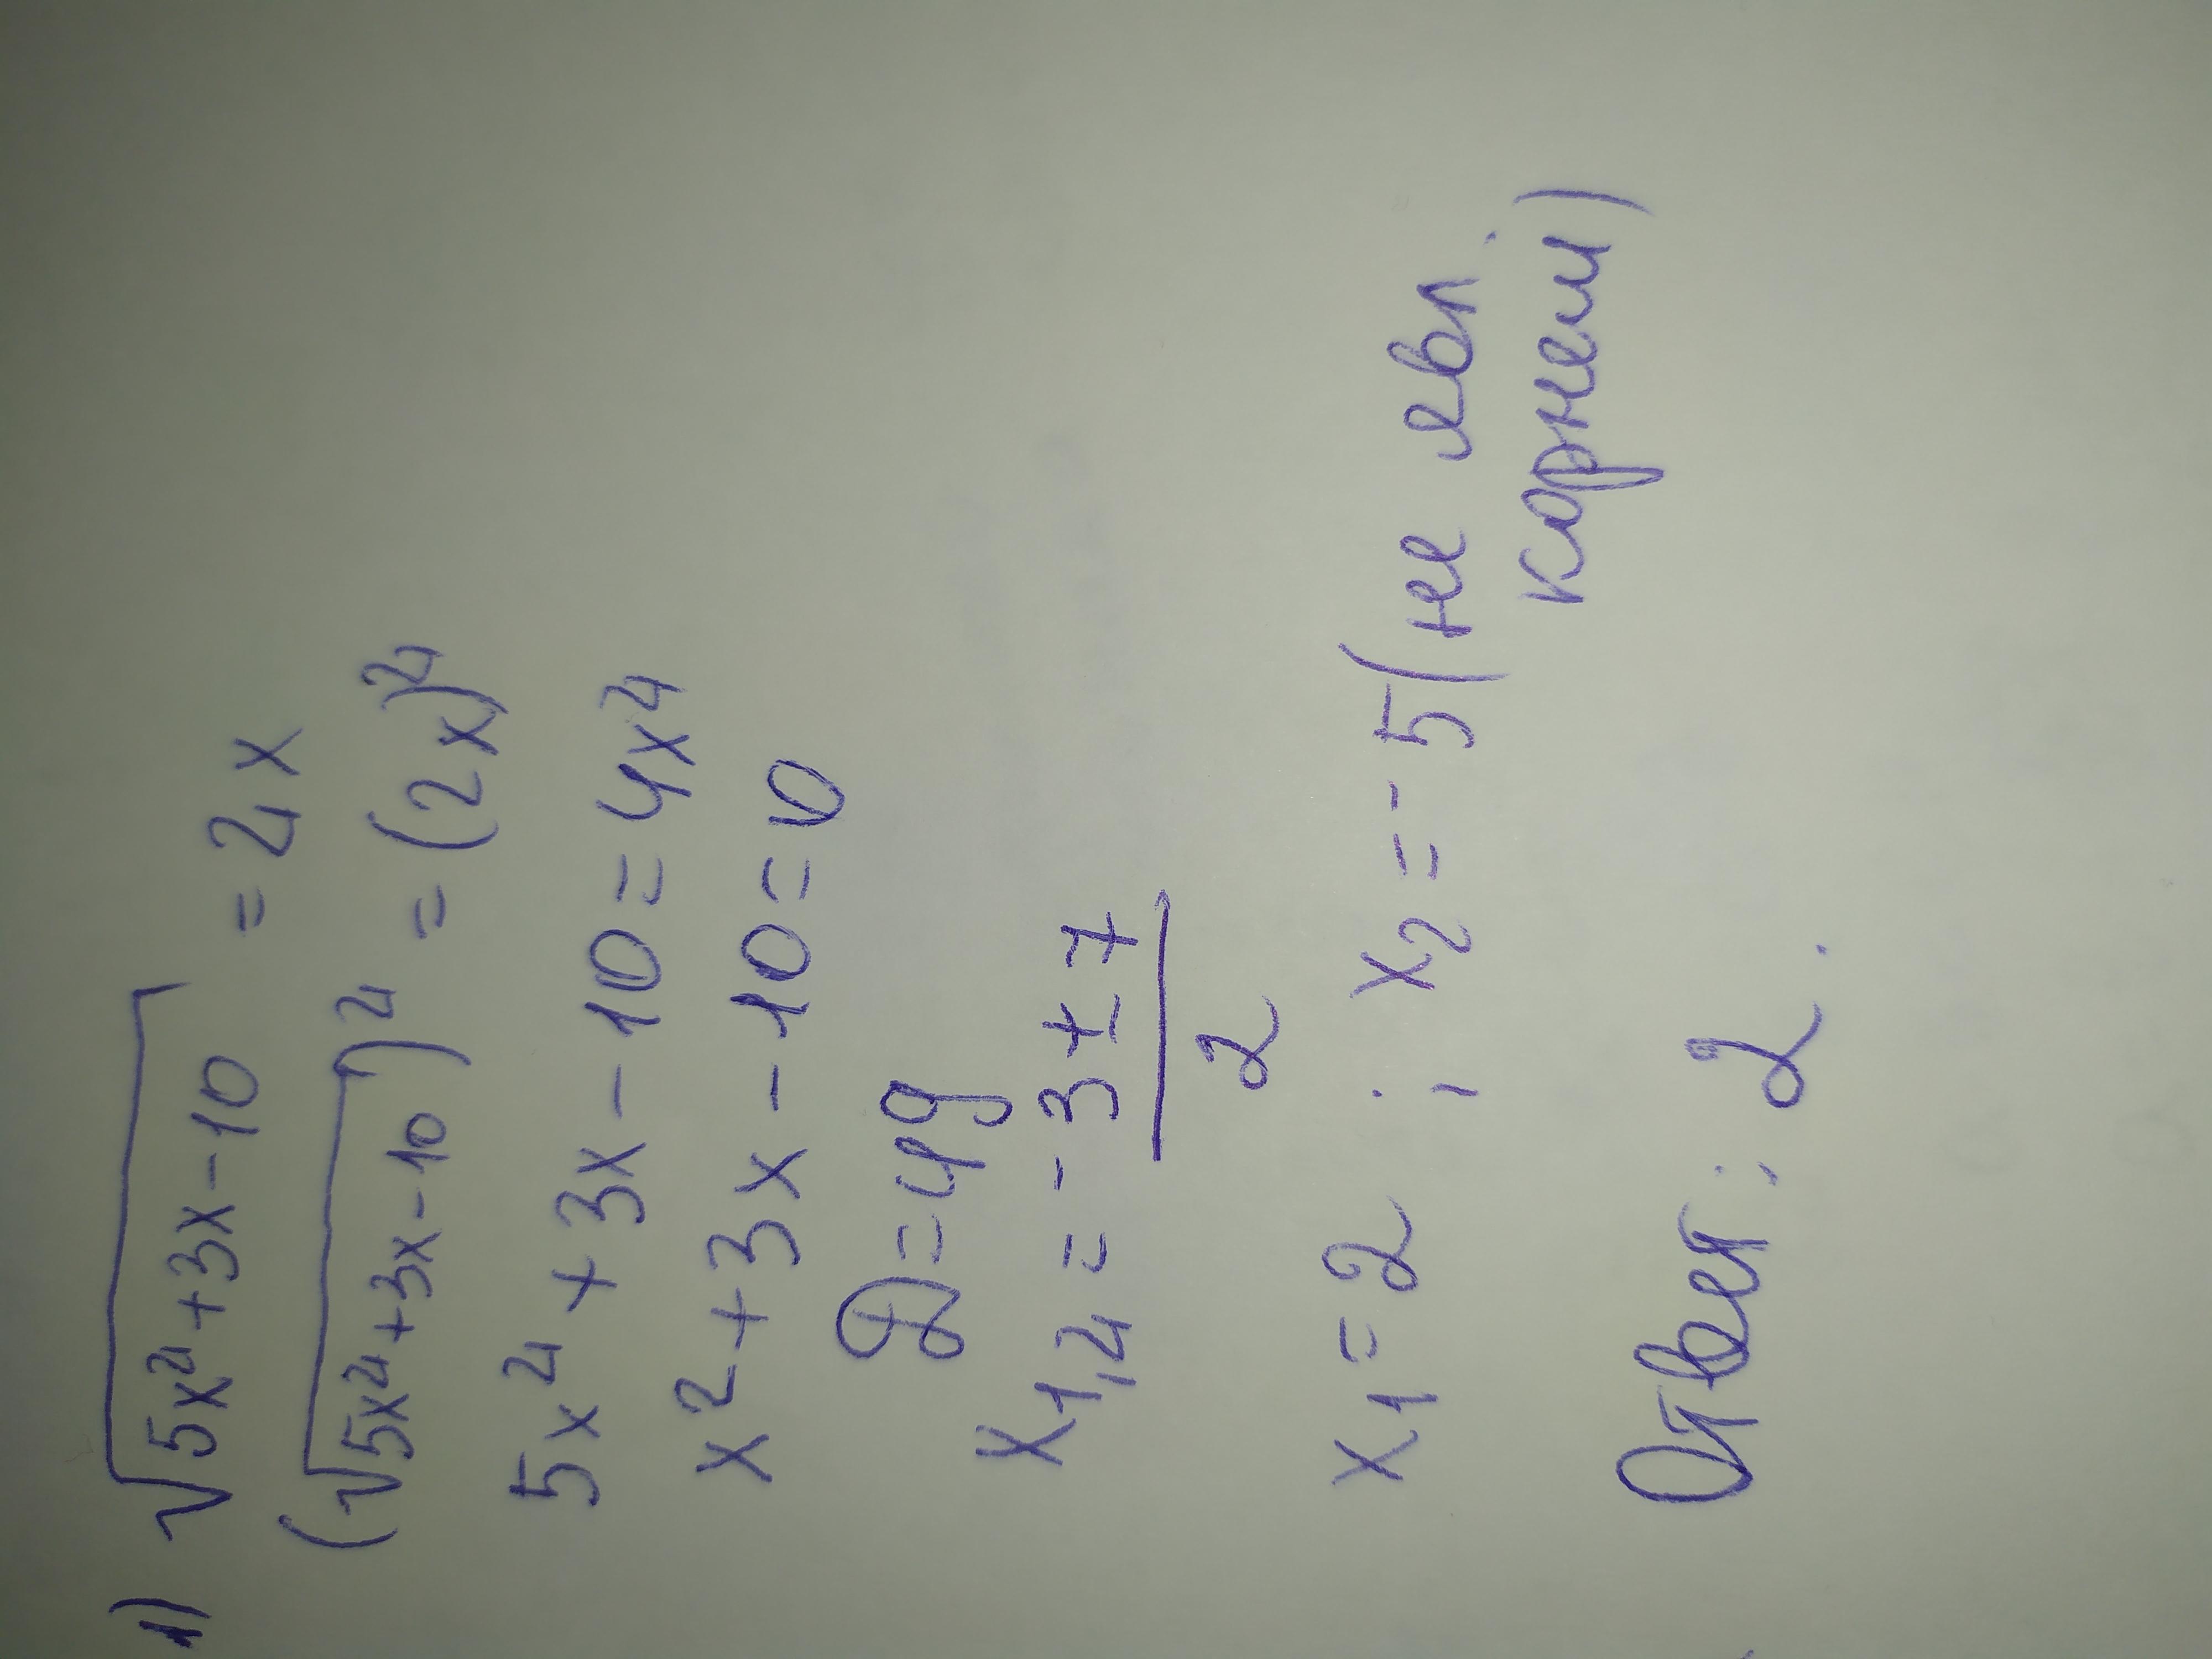 1) √5x²+3x-10 = 2x
(√5x²+3x-10)² = (2x)²
5x²+3x-10=4x²
x²+3x-10=0
D=49
x1,2 = -3±7
2
x1=2 ; x2=-5(не явл.
корнем)
Ответ: 2.